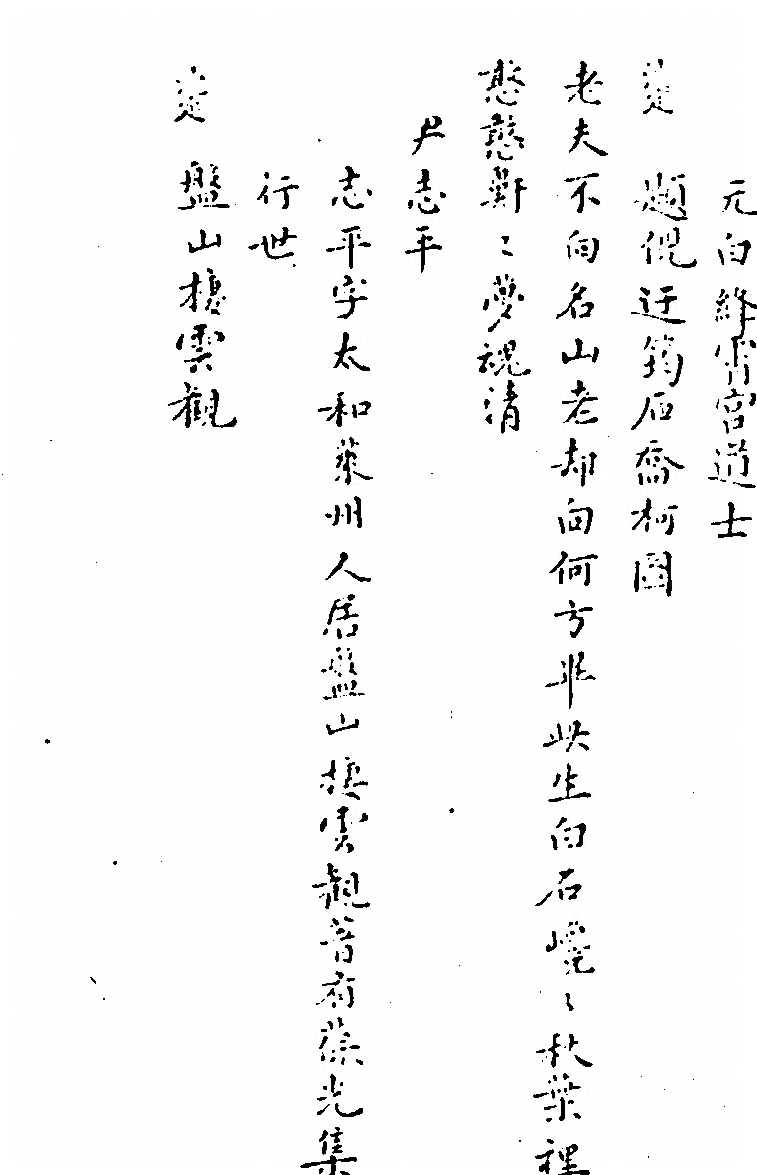 元白絳霄宮道士
是 題倪迂筠石喬柯圖
老夫不向名山老却向何方非此生白石巉〻秋葉裡
憨憨鼾〻夢魂清
尹志平
志平字太和萊州人居盤山棲雲觀著有葆光集
行世
是 盤山棲雲觀